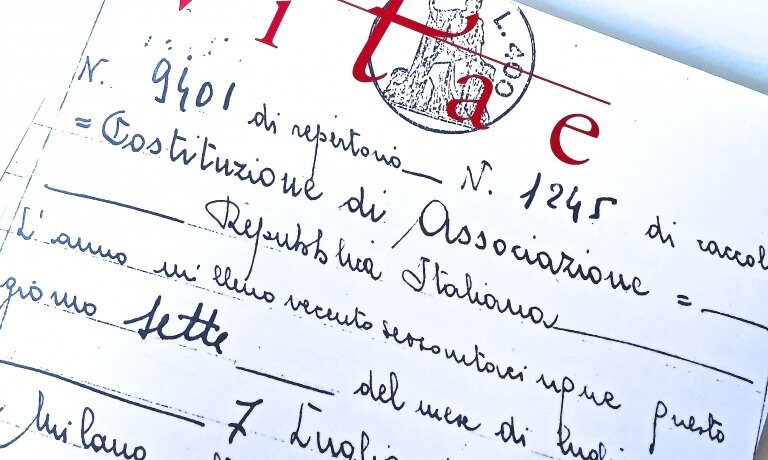 vitae
L. 400
N. 9401 di repertorio N. 1245 di raccol
= Costituzione di Associazione =
Repubblica Italiana
L'anno millenovecentosessantacinque questo
giorno sette del mese di lugli
Milano 7 Luglio